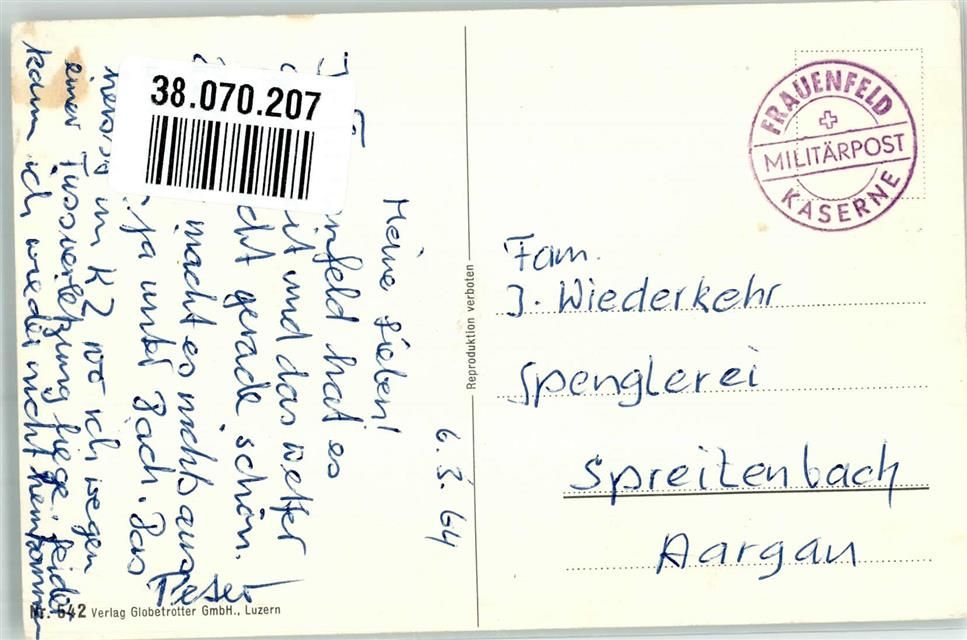 38.070.207
6.3.64
Meine Lieben!
nfeld hat es
it und das wetter
cht gerade schön.
macht es nichts aus
ja unter Dach. Das
im KZ wo ich wegen
einer Fussverletzung liege. leider
kann ich wieder nicht heimkommen
Peter
Nr. 542 Verlag Globetrotter GmbH., Luzern
Reproduktion verboten
FRAUENFELD
MILITÄRPOST
KASERNE
Fam.
J. Wiederkehr
Spenglerei
Spreitenbach
Aargau